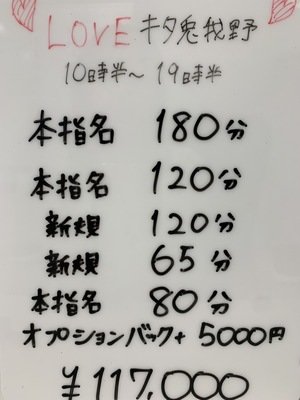 LOVE キタ兎我野
10時半〜19時半
本指名 180分
本指名 120分
新規 120分
新規 65分
本指名 80分
オプションバック+ 5000円
¥117,000